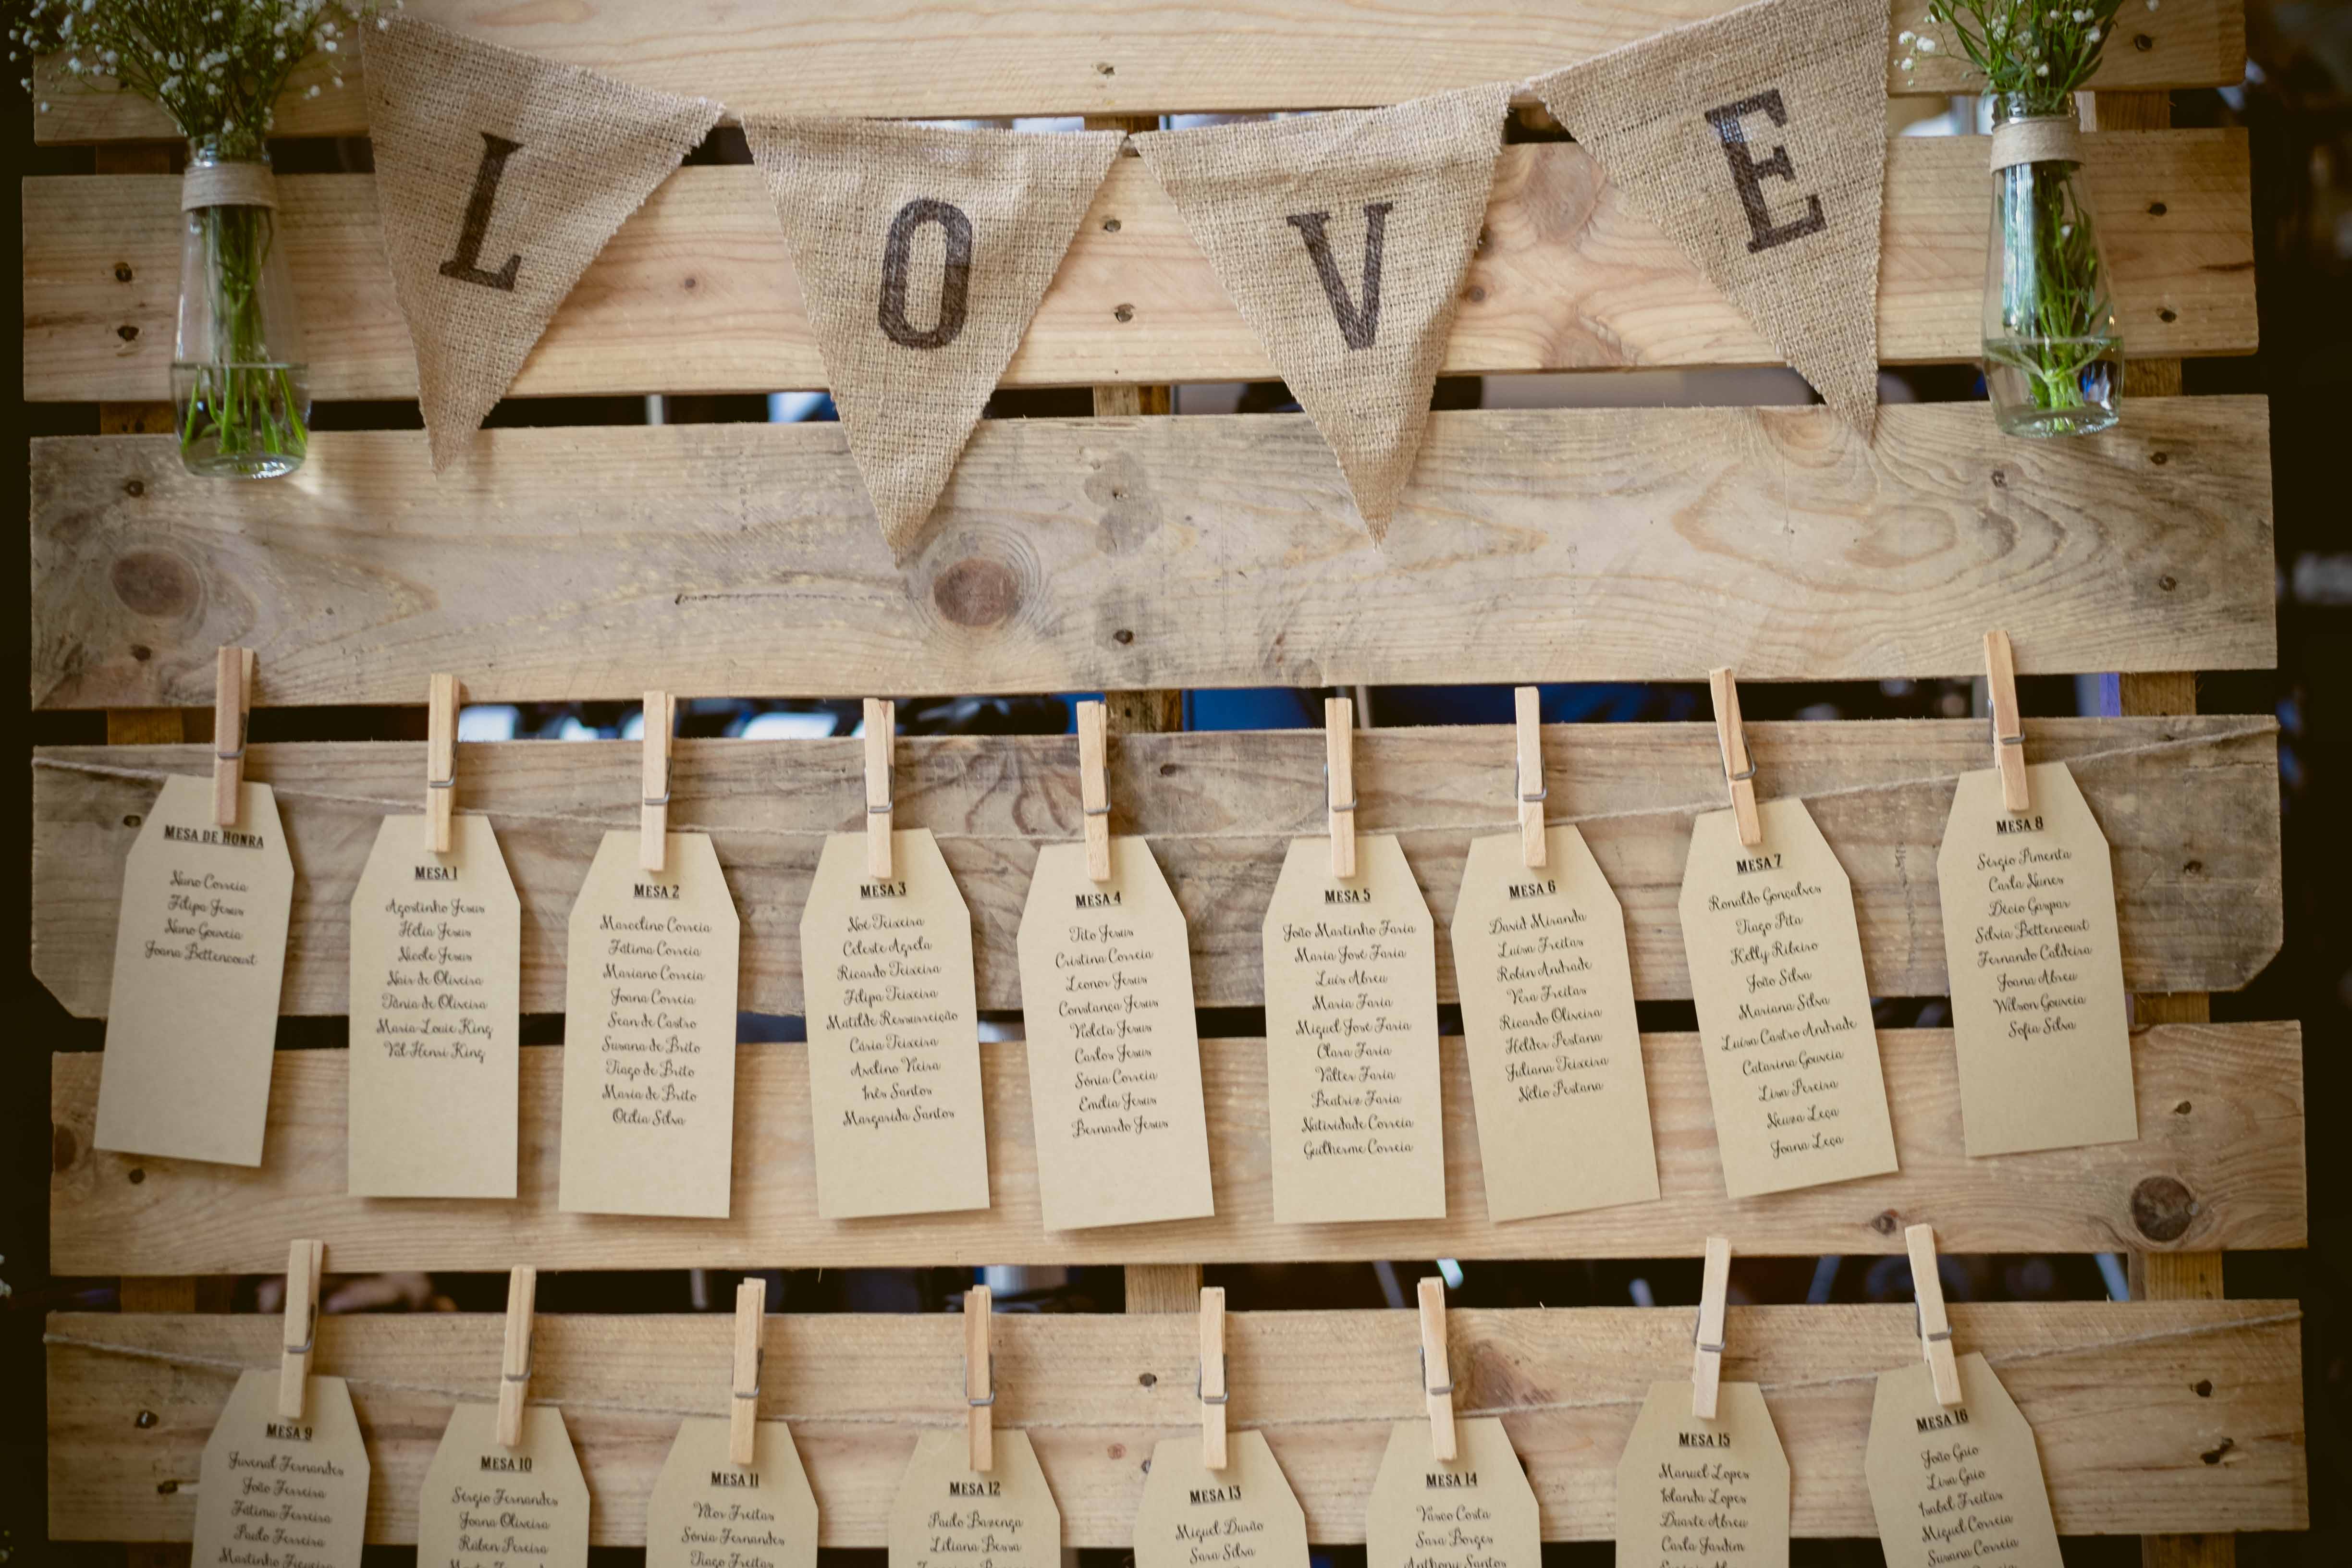 LOVE
MESA DE HONRA
Nuno Correia
Filipa Jesus
Nuno Gouveia
Joana Bettencourt
MESA 1
Agostinho Jesus
Hélia Jesus
Nicole Jesus
Nair de Oliveira
Tânia de Oliveira
Maria-Louie King
Val-Henri King
MESA 2
Marcelino Correia
Fátima Correia
Mariano Correia
Joana Correia
Sean de Castro
Susana de Brito
Tiago de Brito
Maria de Brito
Otília Silva
MESA 3
Noé Teixeira
Celeste Agrela
Ricardo Teixeira
Filipa Teixeira
Matilde Ressurreição
Cária Teixeira
Avelino Vieira
Inês Santos
Margarida Santos
MESA 4
Tito Jesus
Cristina Correia
Leonor Jesus
Constança Jesus
Violeta Jesus
Carlos Jesus
Sónia Correia
Emília Jesus
Bernardo Jesus
MESA 5
João Martinho Faria
Maria José Faria
Luís Abreu
Maria Faria
Miguel José Faria
Clara Faria
Válter Faria
Beatriz Faria
Natividade Correia
Guilherme Correia
MESA 6
David Miranda
Luísa Freitas
Robin Andrade
Vera Freitas
Ricardo Oliveira
Hélder Pestana
Juliana Teixeira
Nélio Pestana
MESA 7
Ronaldo Gonçalves
Tiago Pita
Kelly Ribeiro
João Silva
Mariana Silva
Luísa Castro Andrade
Catarina Gouveia
Lisa Pereira
Neuza Leça
Joana Leça
MESA 8
Sérgio Pimenta
Carla Nunes
Décio Gaspar
Sílvia Bettencourt
Fernando Caldeira
Joana Abreu
Wilson Gouveia
Sofia Silva
MESA 9
Juvenal Fernandes
João Ferreira
Fátima Ferreira
Paulo Ferreira
Martinho
MESA 10
Sérgio Fernandes
Joana Oliveira
Rúben Pereira
MESA 11
Vítor Freitas
Sónia Fernandes
Tiago Freitas
MESA 12
Paulo Bazenga
Liliana Bessa
MESA 13
Miguel Durão
Sara Silva
MESA 14
Vasco Costa
Sara Borges
Anthony Santos
MESA 15
Manuel Lopes
Iolanda Lopes
Duarte Abreu
Carla Jardim
MESA 16
João Gaio
Lisa Gaio
Isabel Freitas
Miguel Correia
Susana Correia